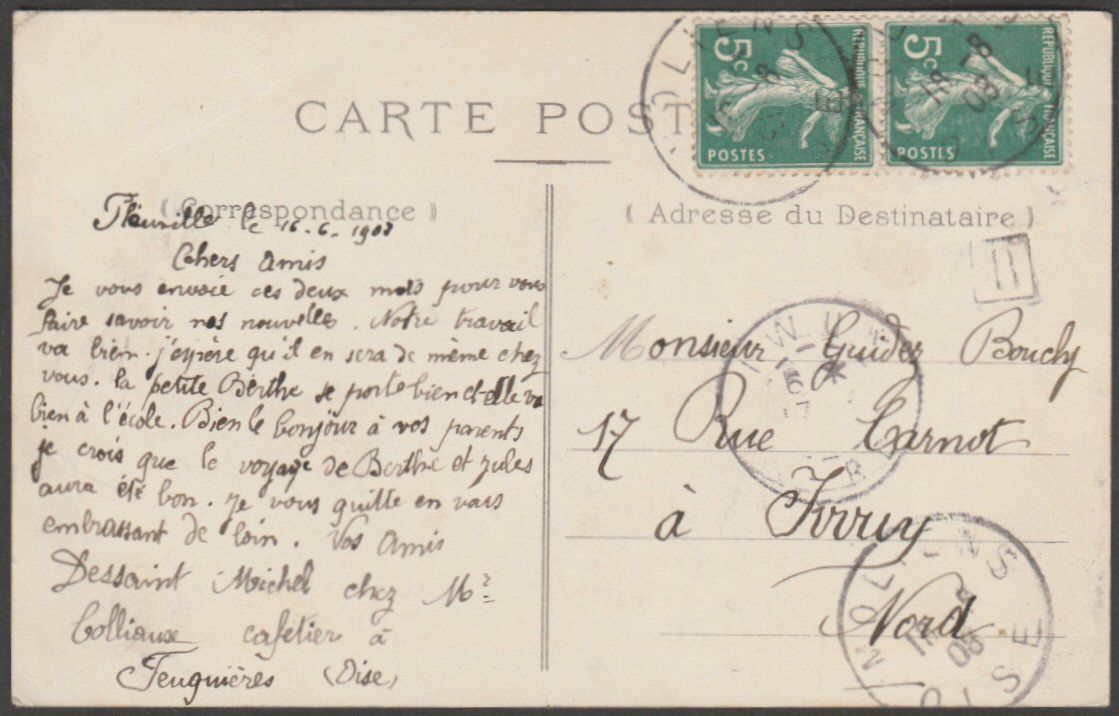 CARTE POST
( Correspondance )
Fleuville le 16-6-1908
Chers Amis
Je vous envoie ces deux mots pour vous
faire savoir nos nouvelle. Notre travail
va bien. j'espère qu'il en sera de même chez
vous. la petite Berthe se porte bien et elle va
bien à l'école. Bien le bonjour à vos parents
je crois que le voyage de Berthe et jules
aura été bon. je vous quitte en vous
embrassant de loin. Vos Amis
Dessaint Michel chez Mr
Colliaux cafetier à
Feuquières (Oise)
5c
REPUBLIQUE FRANÇAISE
POSTES
5c
REPUBLIQUE FRANÇAISE
POSTES
MOLIENS
18 -8
08
( Adresse du Destinataire )
D
Monsieur Guidez Bouchy
17 Rue Carnot
à Iwuy
Nord
IWUY
MOLIENS
08
OISE